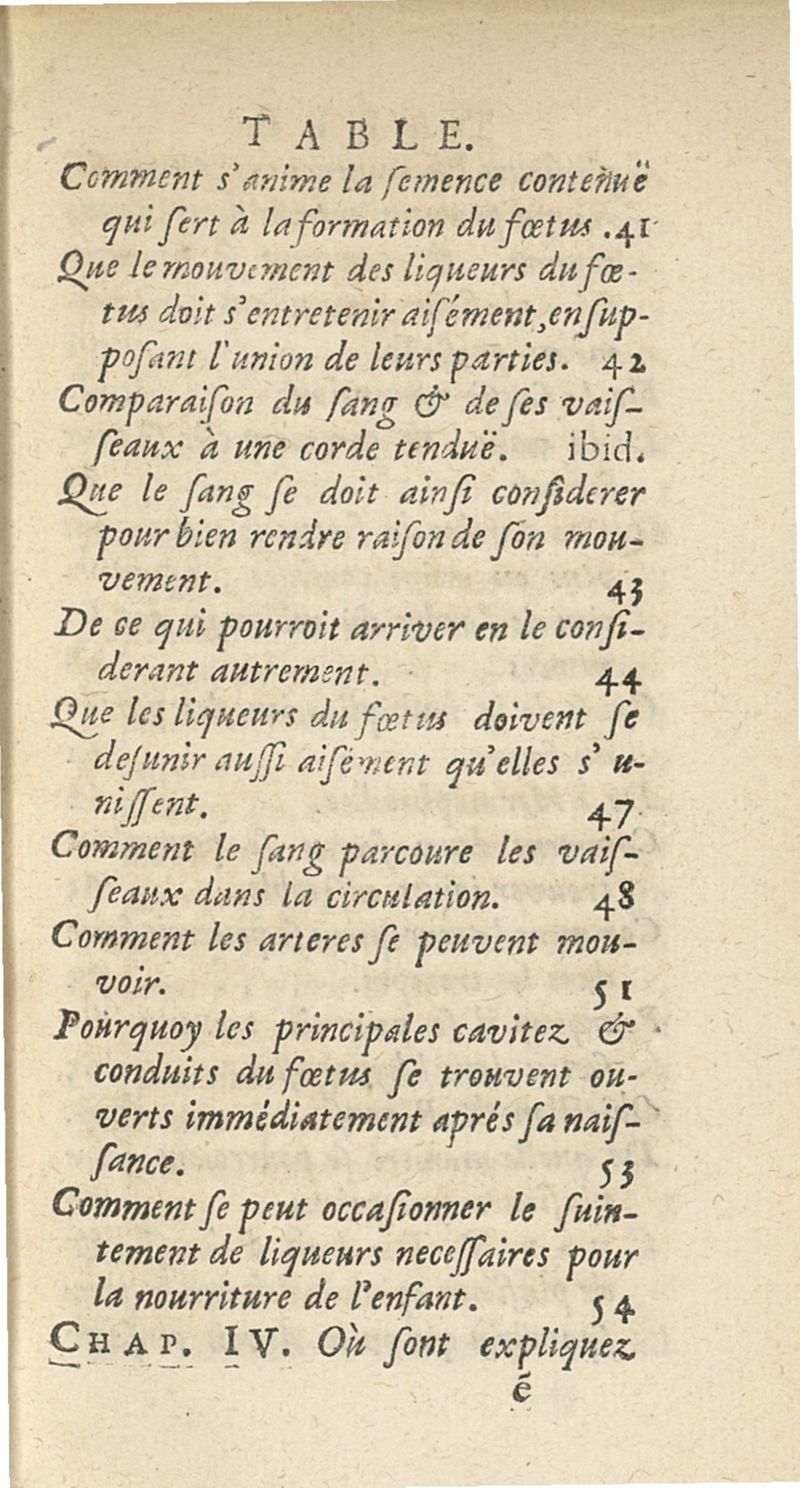 TABLE.
Comment s'anime la ſemence contenuë
qui ſert à la formation du fœtus .41
Que le mouvement des liqueurs du fœ-
tus doit s'entretenir aiſément, en ſup-
poſant l'union de leurs parties. 42
Comparaiſon du ſang & de ſes vaiſ-
ſeaux à une corde tenduë. ibid.
Que le ſang ſe doit ainſi conſiderer
pour bien rendre raiſon de ſon mou-
vement. 43
De ce qui pourroit arriver en le conſi-
derant autrement. 44
Que les liqueurs du fœtus doivent ſe
deſunir auſſi aiſément qu'elles s'u-
niſſent. 47
Comment le ſang parcoure les vaiſ-
ſeaux dans la circulation. 48
Comment les arteres ſe peuvent mou-
voir. 51
Pourquoy les principales cavitez &
conduits du fœtus ſe trouvent ou-
verts immédiatement aprés ſa naiſ-
ſance. 53
Comment ſe peut occaſionner le ſuin-
tement de liqueurs neceſſaires pour
la nourriture de l'enfant. 54
CHAP. IV. Où ſont expliquez
é